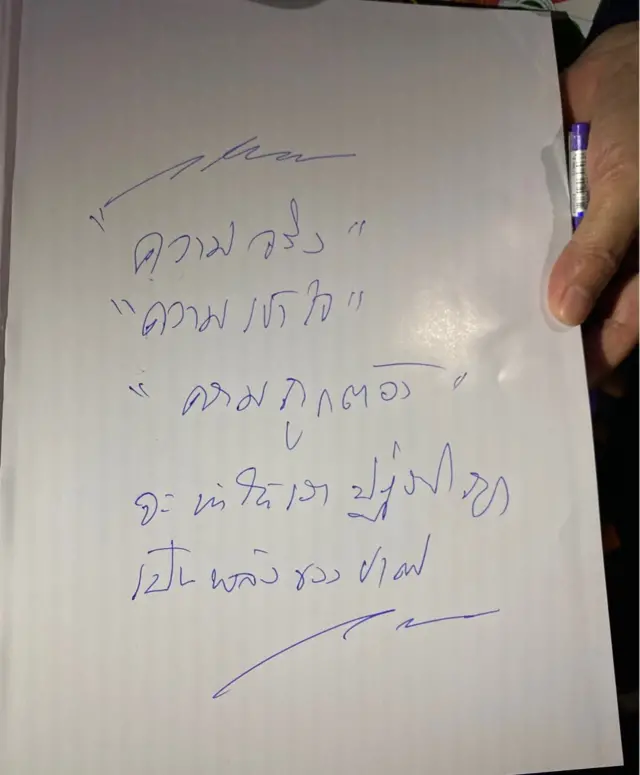 "ความจริง"
"ความเข้าใจ"
"ความถูกต้อง"
จะทำให้เรา
เป็นพลังของชาติ